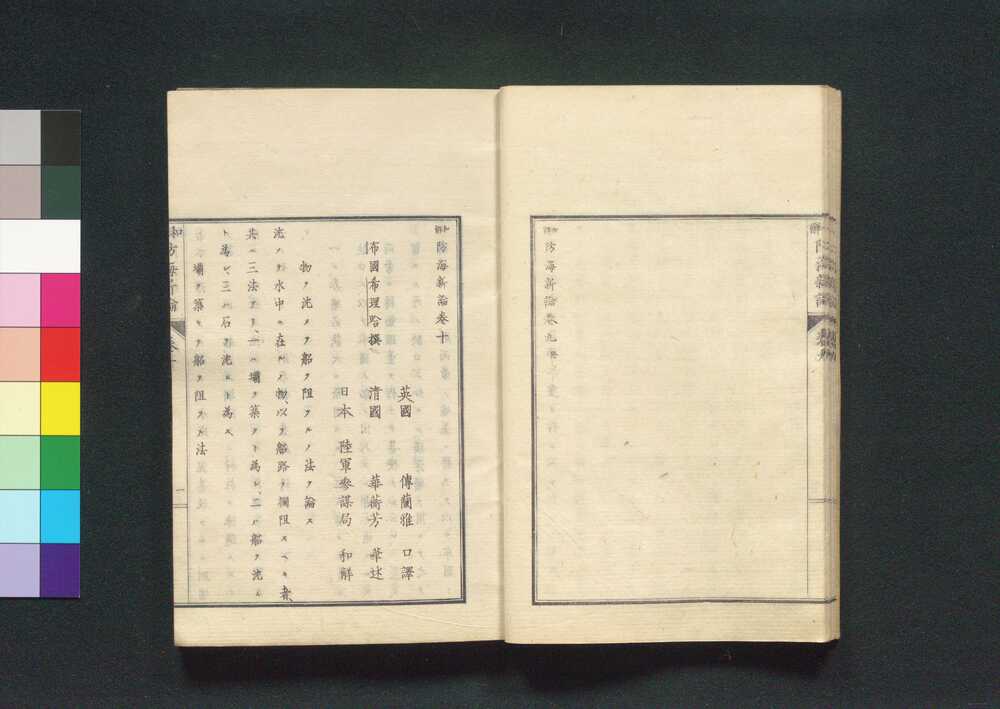 和解防海新論卷九終
和解防海新論卷十
布國希理哈撰
英國　傅蘭雅　口譯
清國　華蘅芳　筆述
日本　陸軍參謀局　和解
物ヲ沈メ船ヲ阻スルノ法ヲ論ス
沈メテ水中ニ在ルノ物、以テ船路ヲ攔阻スベキ者、
共ニ三法アリ、一ハ壩ヲ築クト為シ、二ハ船ヲ沈ム
ト為シ、三ハ石ヲ沈ムト為ス
壩ヲ築キ船ヲ阻スル法
一